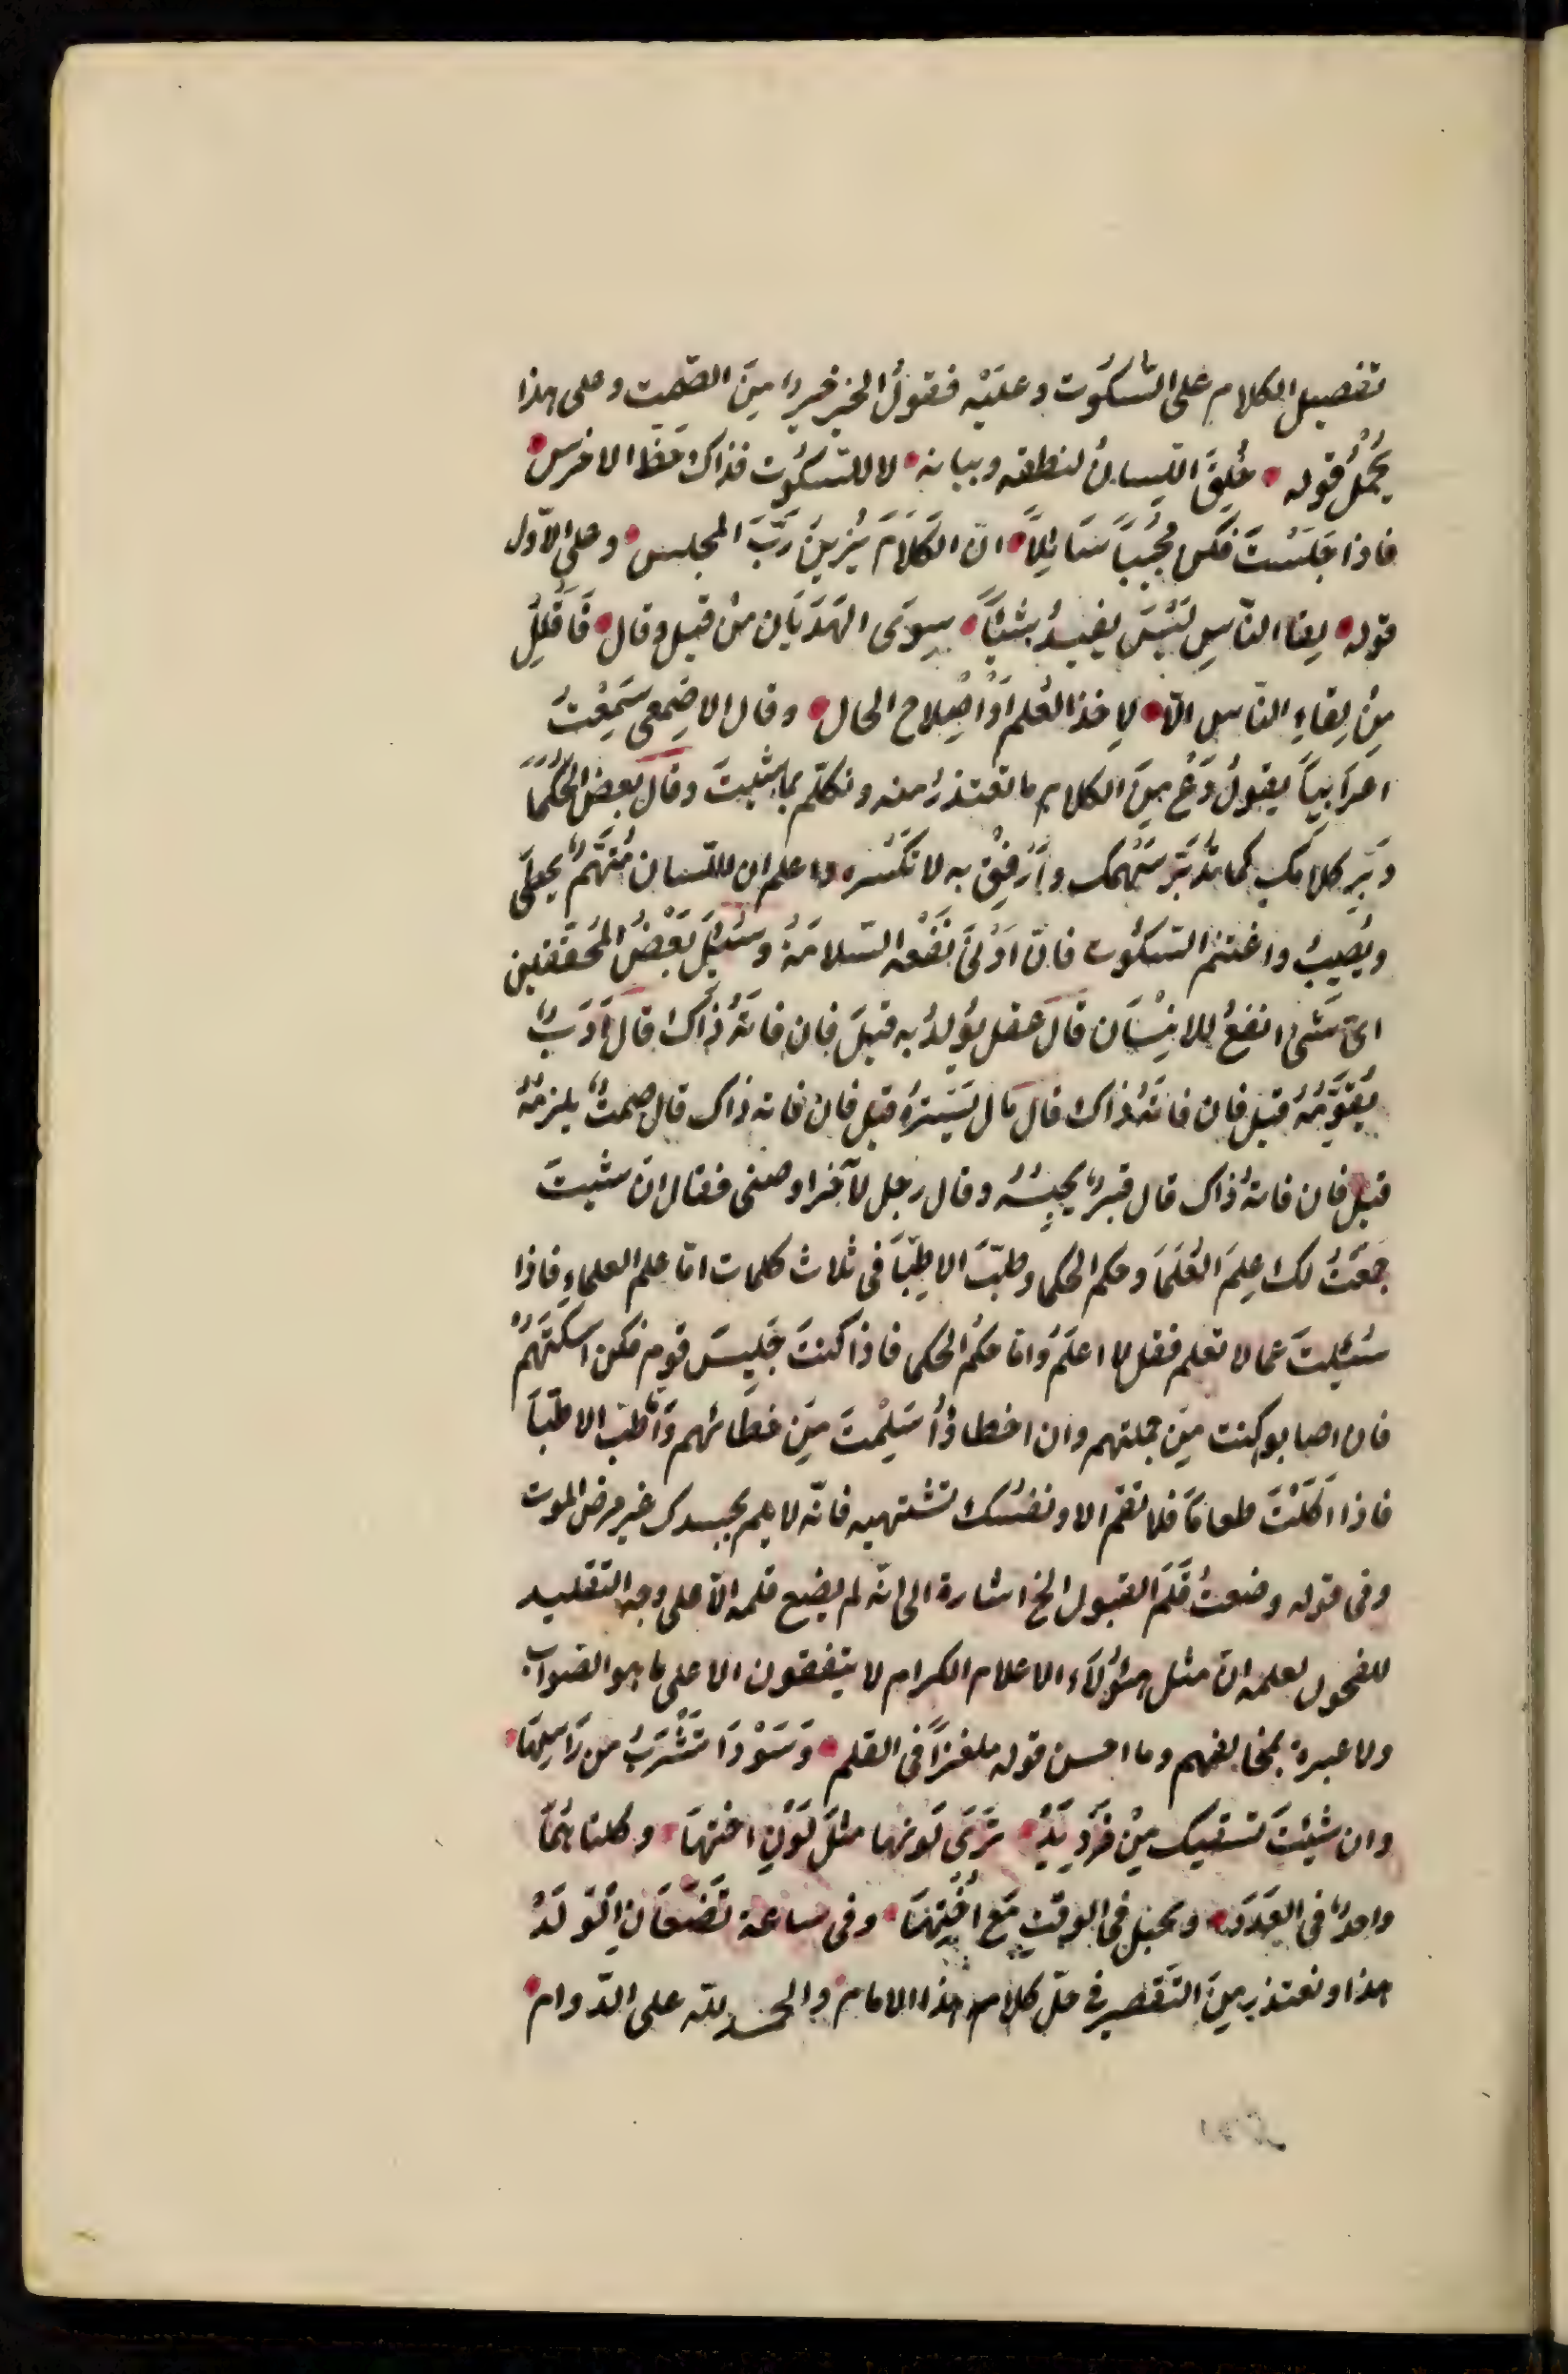 تفصيل الكلام على السّكوت وعليه فقول الخير خيرٌ مِنَ الصّمت وعلى هذا
يُحْمَلُ قوله • خُلِقَ اللّسانُ لنطقه وبيانه • لا للسّكوت فذاك حَظّ الاخرس •
فاذا جَلَسْتَ فكن مُجيبًا سَائِلاً • انّ الكَلَامَ يُزيِنَ رَبَّ المجلس • وعلى الاوّل
قوله • لِقاا النّاسِ لَيْسَ يفيدُ شيئًا • سِوَى الهَذَيَان مِنْ قيل وقال • فَاَقْلِلْ
مِنْ لِقاءِ النّاس الّا • لِاخذ العُلم اَوْ اصْلاح الحال • وقال الاصْمعى سَمِعْتُ
اعرَابيّاً يقولُ دَعْ مِنَ الكلام ما تعتذرُ منه وتكلّم بما شئتَ وقال بعض الحُكَمَا
دَبِّر كلامك كما تُدَبّر سَهْمَك وارْفِقْ به لا تكسّره واعلم ان للّسان سَهْمٌ يخطى
ويُصيبُ واغتنم السّكُوت فانّ اَدْنَى نَفْعه السّلامَةُ وسُئِلَ بَعْضُ المُحَقّقين
اىّ شَئ انفعُ للاِنْسَان قالَ عقل يُولدُ به قيلَ فان فاتَهُ ذَاك قالَ اَدَبٌ
يُقَوِّمُهُ قيل فان فاتَهُ ذاك قال مَال يَسْتُرُهُ قيل فان فاته ذاك قال صمتٌ يلزمُهُ
قيل فان فاتهُ ذاك قال قبرٌ يُجِنّهُ وقال رجل لآخر اوصنى فقال ان شئتَ
جَمَعْتُ لك عِلمَ العُلَمَا وحكم الحكما وطبّ الاطِبّا فى ثلاث كلمات امّا علم العلماءِ فاذا
سُئِلتَ عما لا تعلم فقل لا اعلمُ وامّا حكم الحكما فاذا كنتَ جَليسَ قوم فكن اسكتَهُمْ
فان اصابوا كنت مِن جملتهم وان اخطاؤا سَلِمْتَ مِن خطائهم وَامّا طبّ الاطبّا
فاذا اكَلْتَ طعامًا فلا تقم الا ونفسُك تشتهيه فانّه لا يلم بجسدك غير مرض الموت
وفى قوله وضعتُ قَلَم القبول الخ اشارة الى انّه لم يضع قلمه الّا على وجه التقليد
للفحول لعلمه انّ مثل هؤلآء الاعلام الكرام لا يتفقون الا على ما هو الصواب
ولا عبرة بمخالفهم وما احسن قوله ملغزاً فى القلم • وَسَوْدَا تَشْرَبُ من رَاسِهَا •
وان شئِتَ تسقيك مِنْ فَرْدِ يَدْ • تَرَى لَونها مثلَ لَوْنِ اختهَا • وكلتاهُمَا
واحدٌ فى العَدَد • وتحبل فى الوقتِ مَع اُخْتِهَا • وفى ساعة تَضَعَانِ الوَلَدْ
هذا ونعتذر مِنَ التّقصير فى حلّ كلام هذا الامام • والحمد للّه على الدّوام •